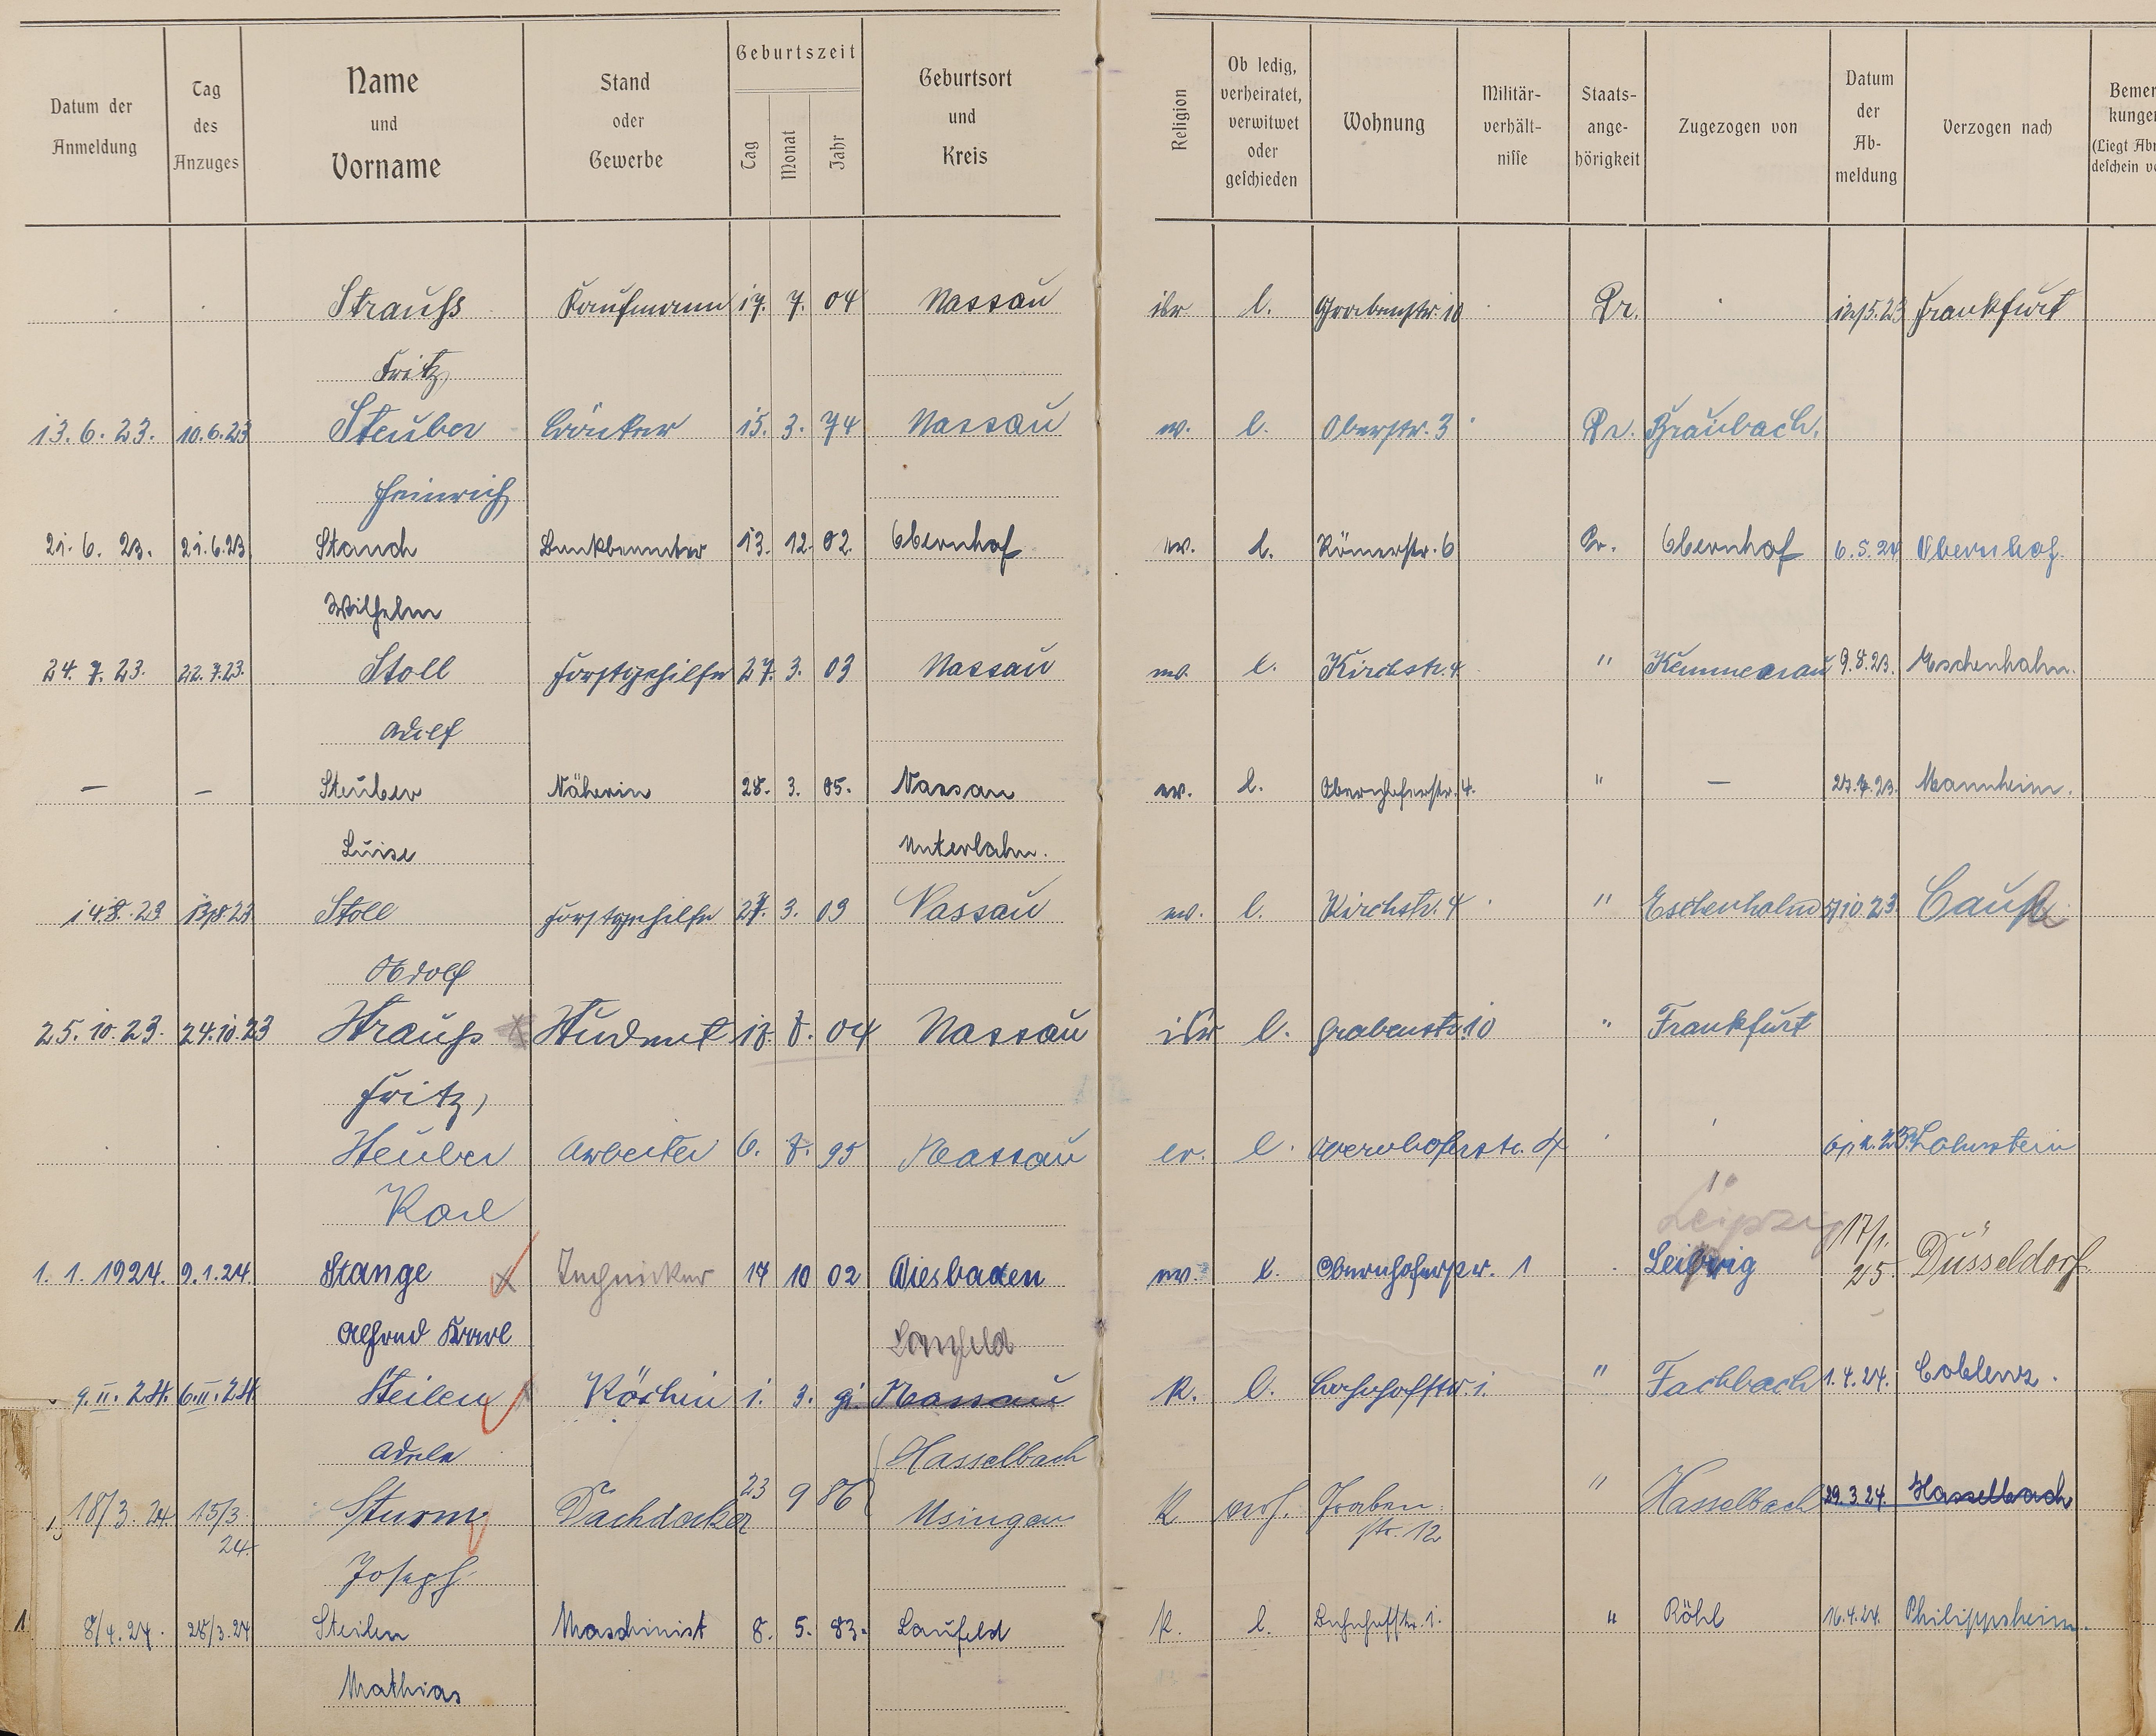 Datum der Anmeldung | Tag des Anzuges | Name und Vorname | Stand oder Gewerbe | Geburtszeit Tag Monat Jahr | Geburtsort und Kreis | Religion | Ob ledig, verheiratet, verwitwet oder geschieden | Wohnung | Militär-verhält-nisse | Staats-ange-hörigkeit | Zugezogen von | Datum der Ab-meldung | Verzogen nach | Bemer kunge (Liegt Ab deschein v
Strauß Kaufmann 17. 7. 04 Nassau isr l. Grabenstr. 10 Pr. 12/5.23 Frankfurt
Fritz
13.6.23. 10.6.23 Steuber 15. 3. 74 Nassau ev. l. Oberstr. 3 Pr. Braubach.
Heinrich
21.6.23. 21.6.23. Stauch Bankbeamter 13. 12. 02. Obernhof ev. l. Römerstr. 6 Pr. Obernhof 6.5.24 Obernhof.
Wilhelm
24.7.23. 22.7.23. Stoll Forstgehilfe 27. 3. 03 Nassau ev. l. Kirchstr. 4 " Kemmenau 9.8.23. Eschenhahn.
Adolf
— — Steuber Näherin 28. 3. 05. Nassau ev. l. Obernhoferstr. 4. " — 27.7.23. Mannheim.
Luise Unterlahn.
14.8.23 13.8.23 Stoll Forstgehilfe 27. 3. 03 Nassau ev. l. Kirchstr. 4 " Eschenhahn 5/10.23. Caub
Adolf
25.10.23. 24.10.23 Strauß Student 17. 7. 04 Nassau isr l. Grabenstr. 10 " Frankfurt
Fritz,
Steuber Arbeiter 6. 7. 95 Nassau ev. l. Obernhoferstr. 4 Lahnstein
Karl
Leipzig 17/1.
1.1.1924. 9.1.24. Stange Techniker 17 10 02 Wiesbaden ev. l. Obernhoferstr. 1 Leipzig 25. Düsseldorf
Alfred Karl Laufeld
9.II.24. 6.II.24 Steilen Köchin 1. 3. 91. Nassau K. l. Bahnhofstr 1. " Fachbach 1.4.24. Coblenz.
Adele Hasselbach
18/3.24 15/3.24. Sturm Dachdecker 23 9 86 Usingen K verh. Grabenstr. 12 " Hasselbach 29.3.24. Hasselbach
Joseph
1. 8/4.24. 28/3.24 Steilen Maschinist 8. 5. 83. Laufeld K. l. Bahnhofstr. 1. " Röhl 16.4.24. Philippsheim.
Mathias